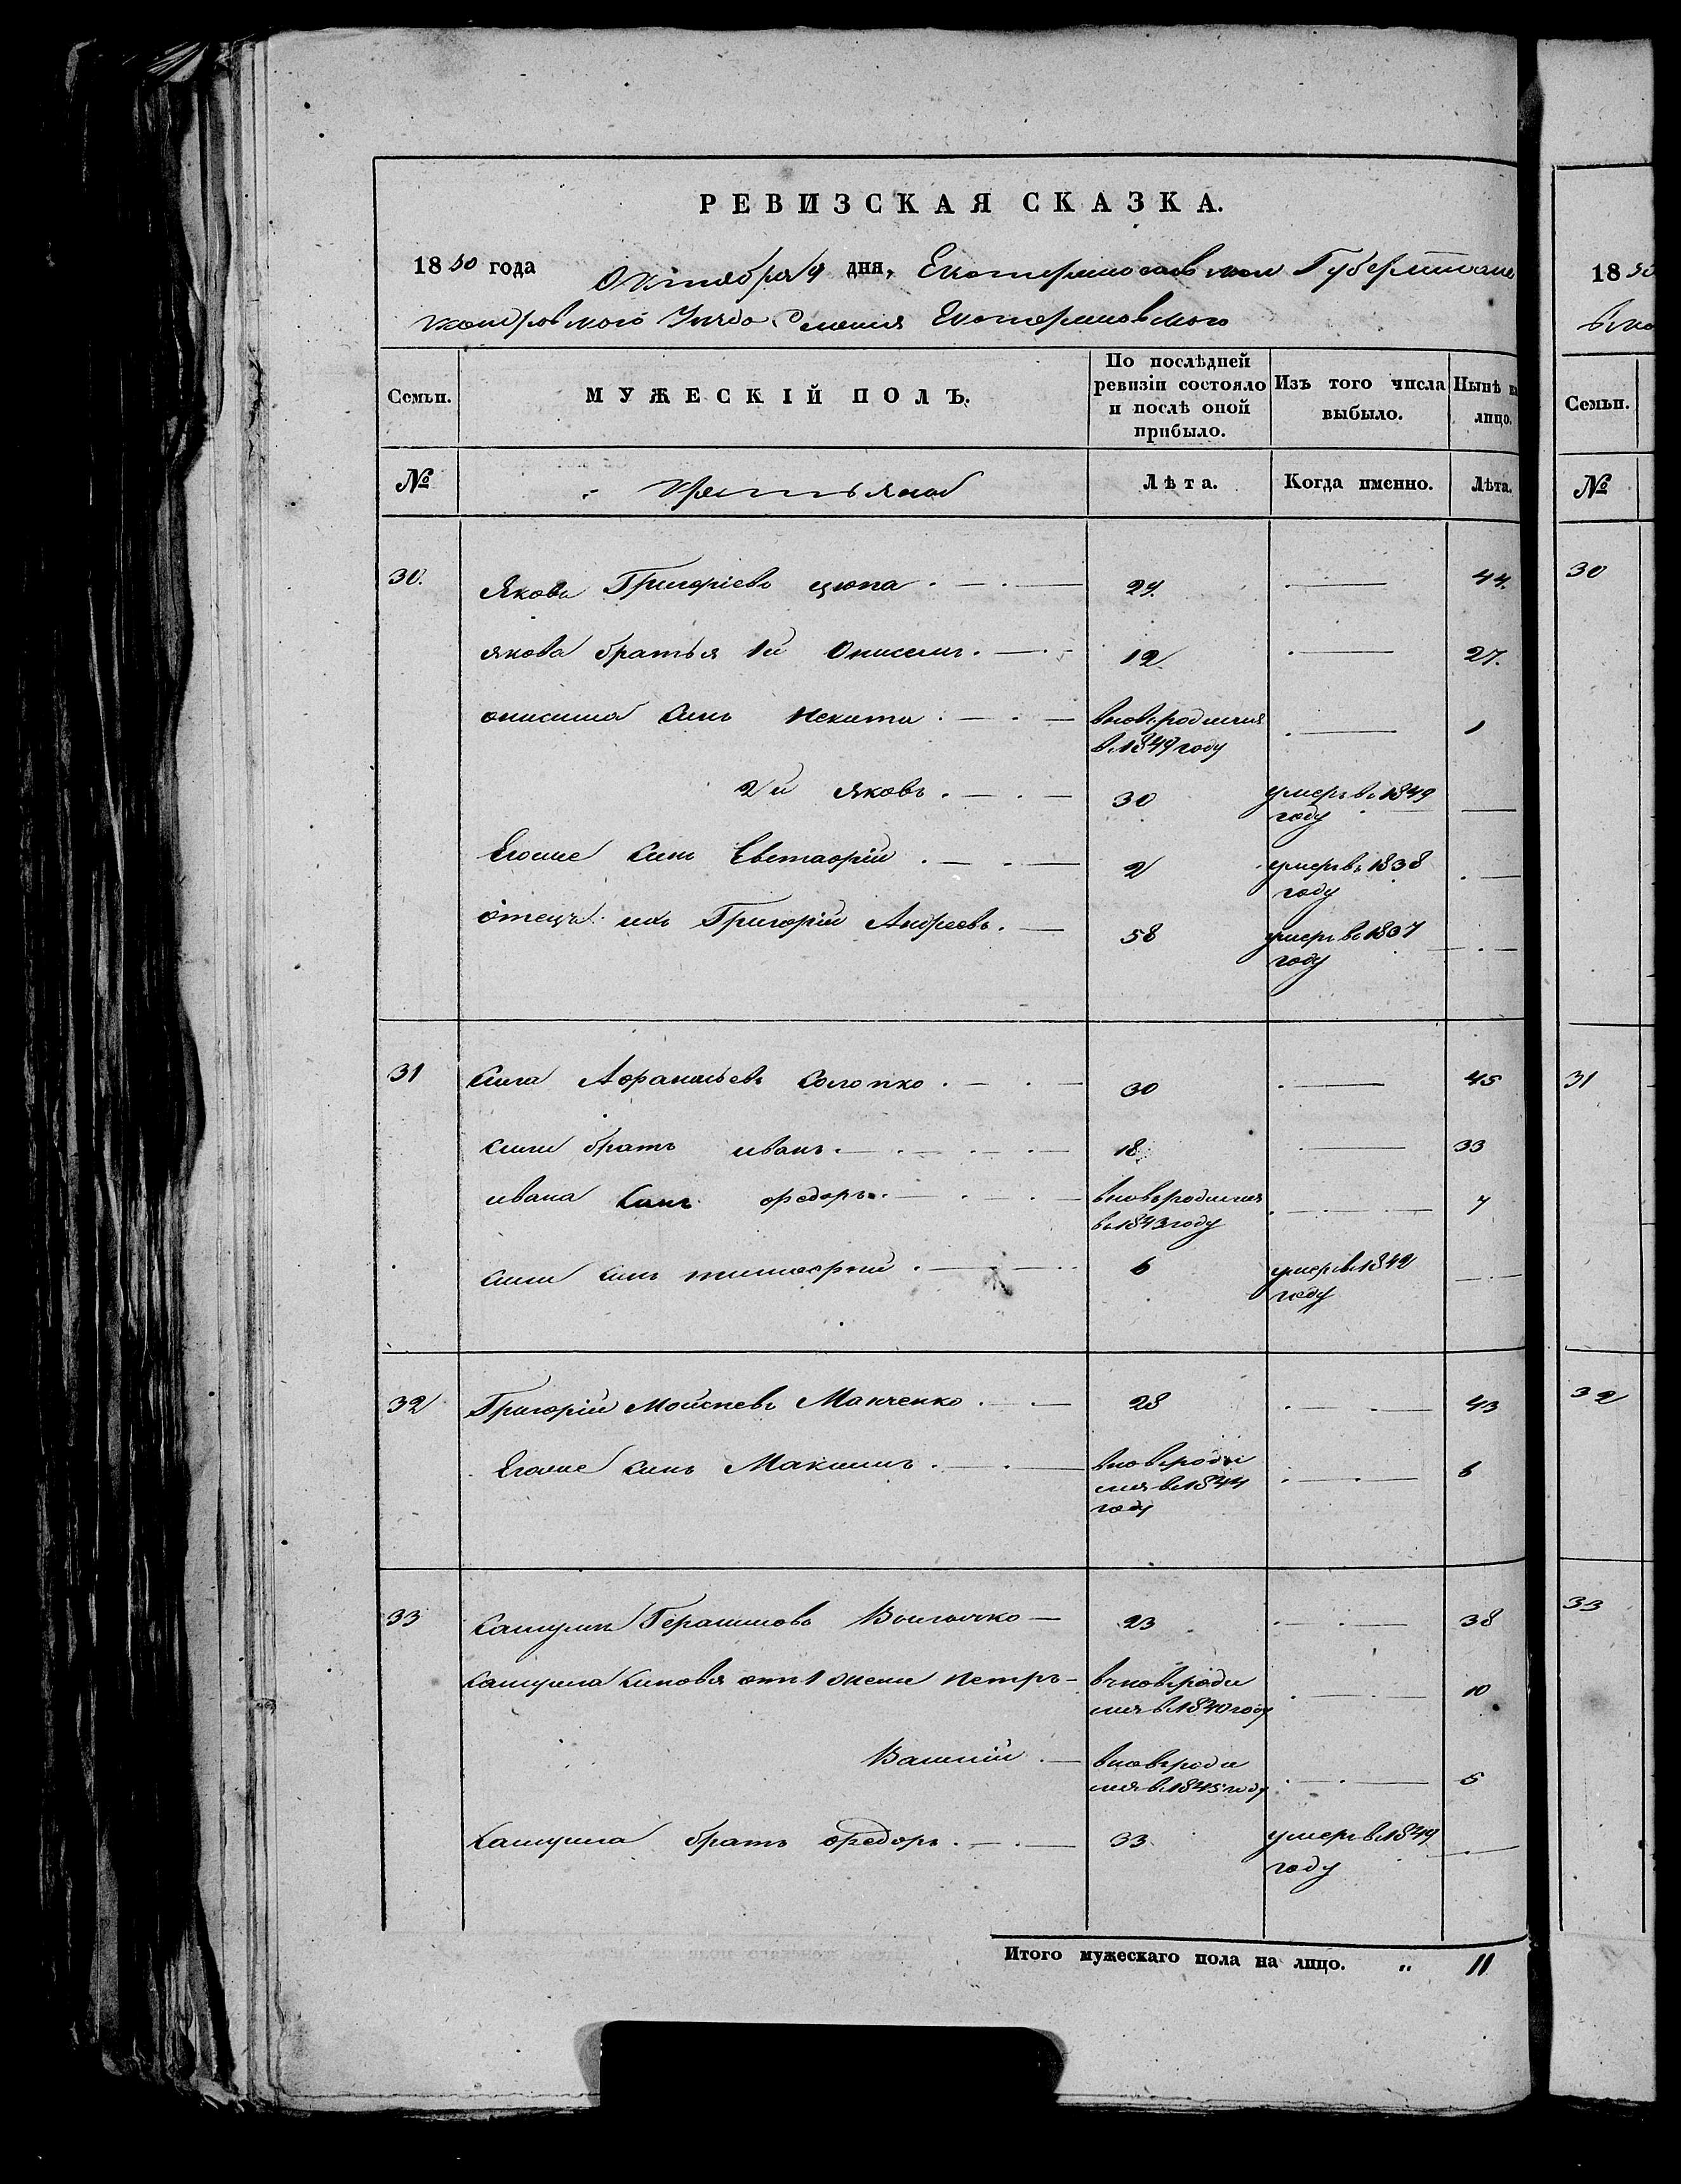 РЕВИЗСКАЯ СКАЗКА.
1850 года Октября 9 дня, Екатеринославской Губернии Алек
сандровского Уезда Селения Екатериновского
Семьи. МУЖЕСКІЙ ПОЛЪ. По послѣдней ревизіи состояло и послѣ оной прибыло. Изъ того числа выбыло. Нынѣ на лицо.
№ Крестьянъ Лѣта. Когда именно. Лѣта.
30. Яковъ Григоріевъ цюпа 29. 44.
якова братья 1й Онисимъ 12 27.
онисима Синъ Некита вновь родился 1
в 1849 году
2й Яковъ 30 умеръ в 1849
году
Егоже Синъ Евстафій 2 умеръ в 1838
году
отецъ ихъ Григорій Андреевъ 58 умеръ в 1837
году
31 Сила Афанасьевъ Солопко 30 45
Сили братъ иванъ 18 33
ивана Синъ федоръ вновь родился 7
в 1843 году
Сили Синъ тимофей 6 умер в 1842
году
32 Григорій Мойсѣевъ Манченко 28 43
Егоже Синъ Максимъ вновь роди 6
лся в 1844
году
33 Самуилъ Герасимовъ 23 38
Самуила Синовья отъ 1 жени Петръ вновь роди 10
лся в 1840 году
Василій вновь роди 5
лся в 1845 году
Самуила братъ федоръ 33 умеръ в 1849
году
Итого мужескаго пола на лицо. „ 11
1850
Семьи.
№
30
31
32
33